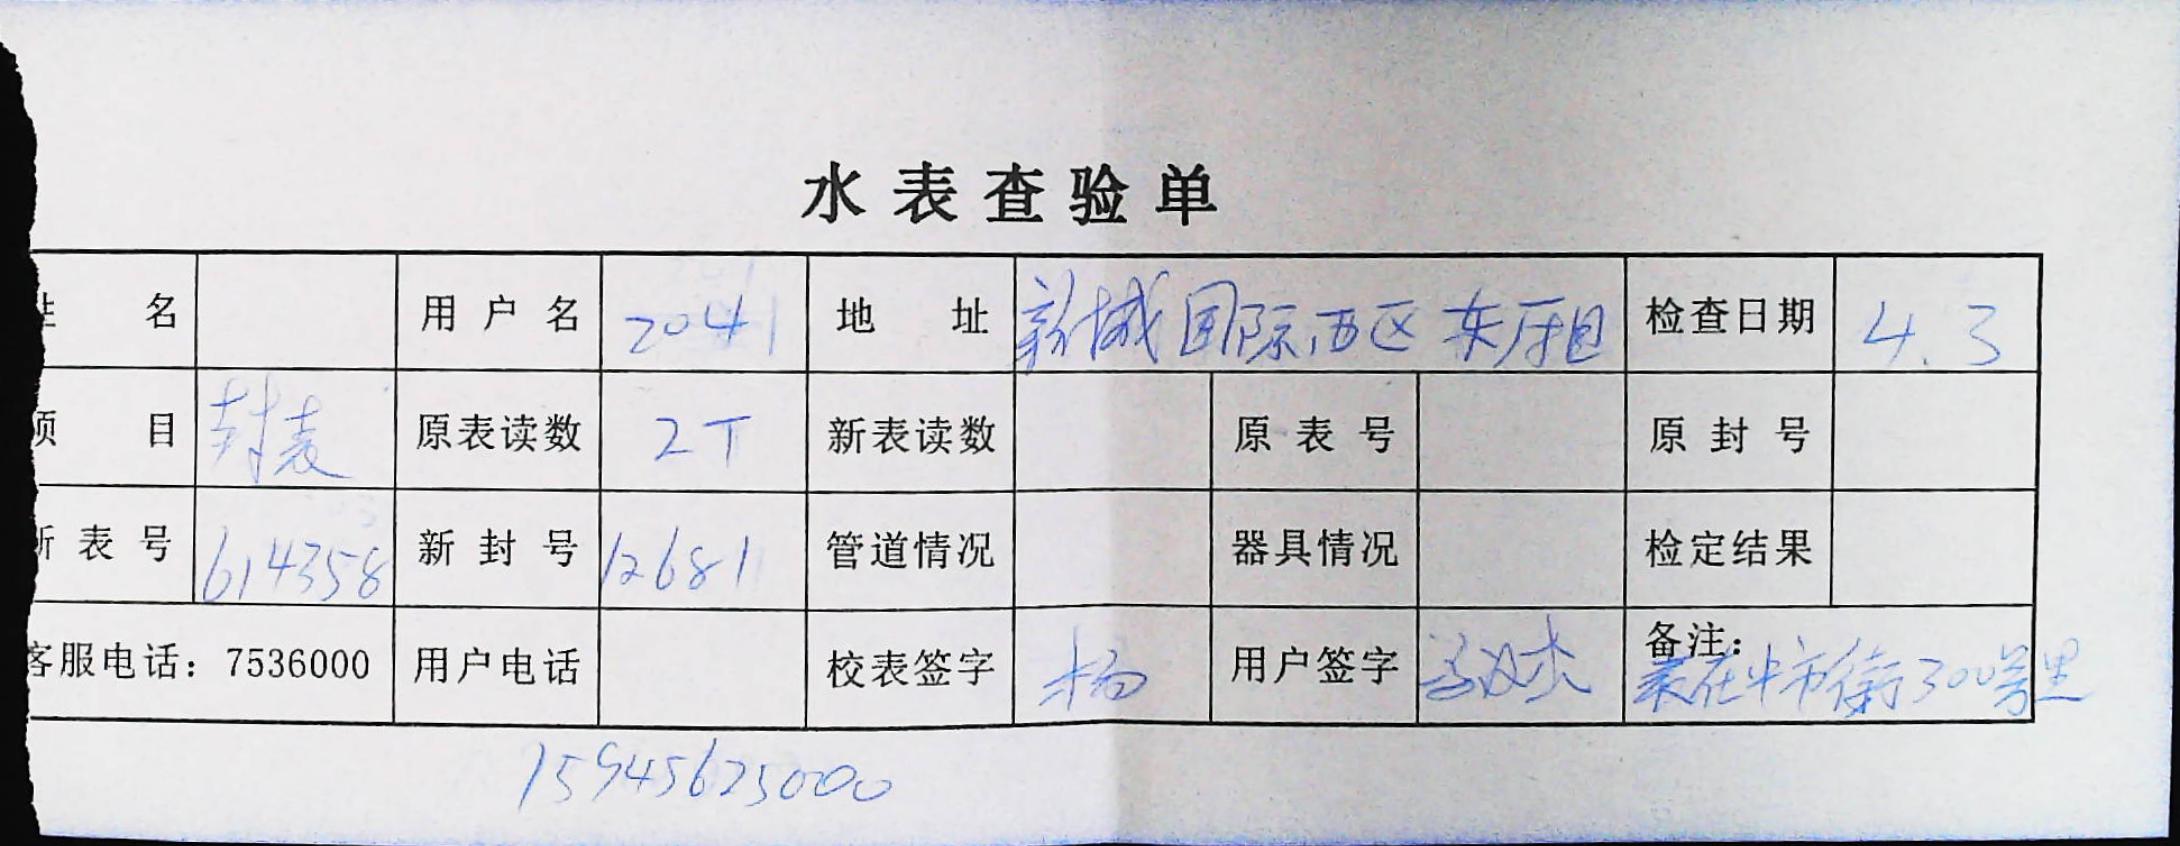 水表查验单
姓名 用户名 2041 地址 新城国际西区东厢 检查日期 4.3
项目 封表 原表读数 2T 新表读数 原表号 原封号
新表号 614358 新封号 12681 管道情况 器具情况 检定结果
客服电话：7536000 用户电话 校表签字 杨 用户签字 备注：
表在牛市街300号里
15945625000